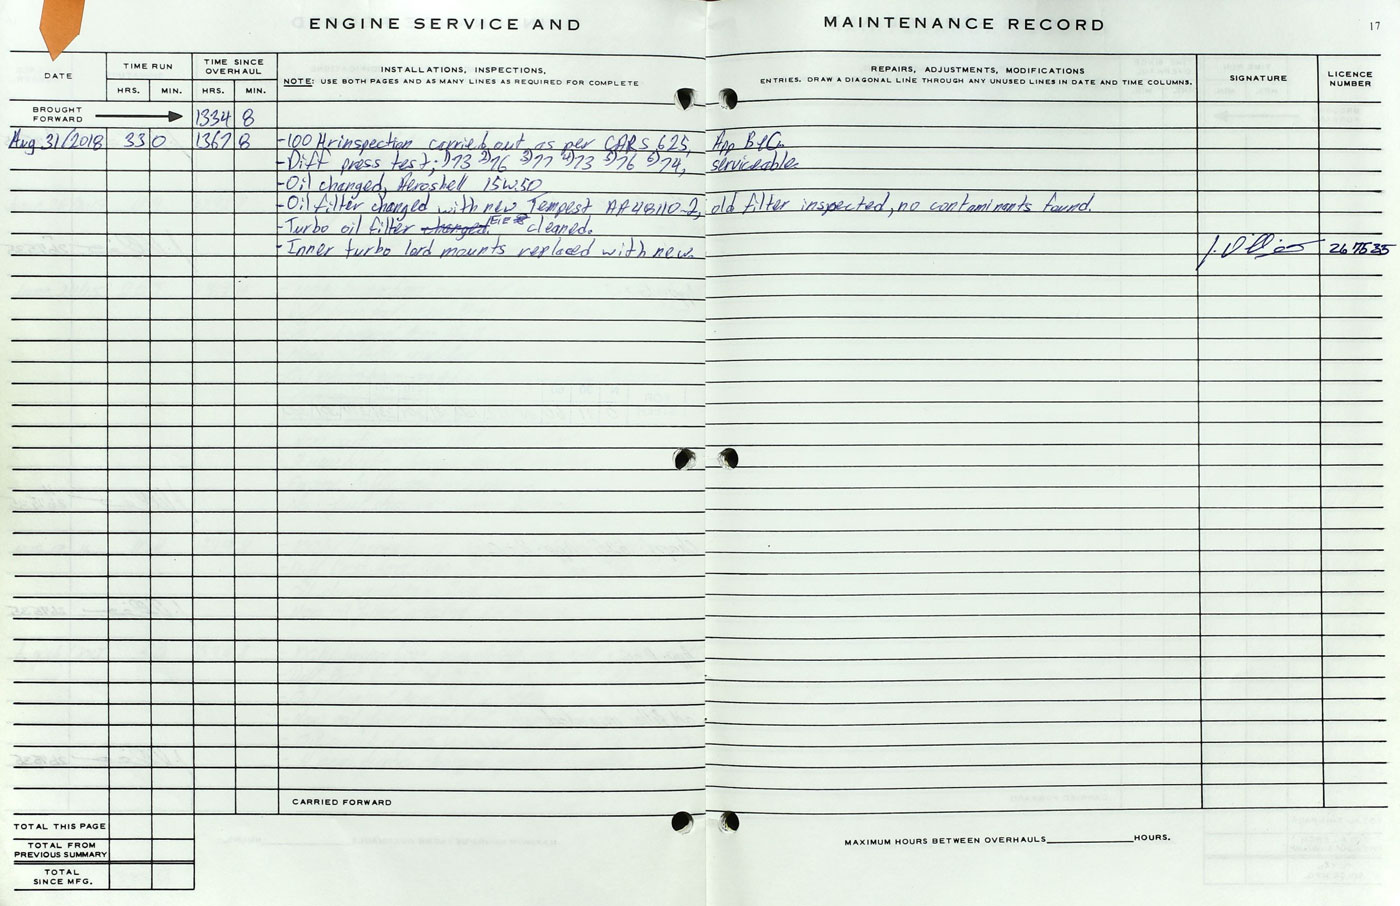 ENGINE SERVICE AND MAINTENANCE RECORD 17
DATE
TIME RUN
HRS. MIN.
TIME SINCE OVERHAUL
HRS. MIN.
INSTALLATIONS, INSPECTIONS,
NOTE: USE BOTH PAGES AND AS MANY LINES AS REQUIRED FOR COMPLETE
REPAIRS, ADJUSTMENTS, MODIFICATIONS
ENTRIES. DRAW A DIAGONAL LINE THROUGH ANY UNUSED LINES IN DATE AND TIME COLUMNS.
SIGNATURE
LICENCE NUMBER
BROUGHT FORWARD 1334 8
Aug 31/2018 33 0 1367 8 -100 Hr inspection carried out as per CARS 625, App B&C.
-Diff press test; 1)73 2)76 3)77 4)73 5)76 6)74, serviceable.
-Oil changed, Aeroshell 15W50
-Oil filter changed with new Tempest AA48110-2, old filter inspected, no contaminants found.
-Turbo oil filter changed. cleaned.
-Inner turbo lord mounts replaced with new. 267535
CARRIED FORWARD
TOTAL THIS PAGE
TOTAL FROM PREVIOUS SUMMARY
TOTAL SINCE MFG.
MAXIMUM HOURS BETWEEN OVERHAULS HOURS.